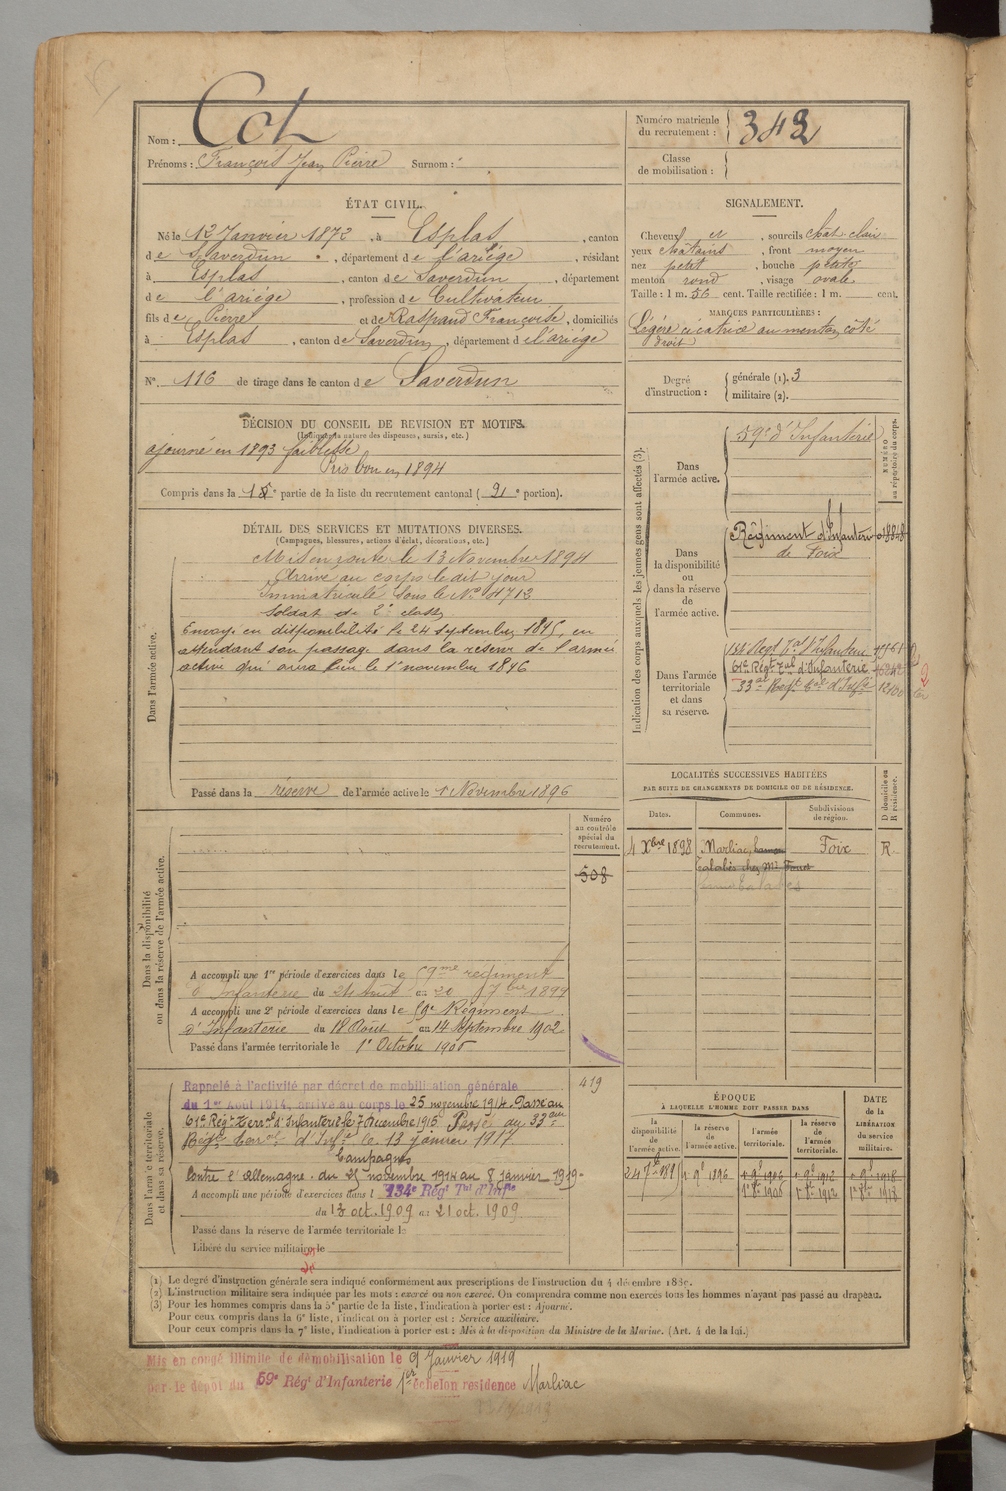 Nom : Cot
Prénoms : François Jean Pierre Surnom :
Numéro matricule du recrutement : 342
Classe de mobilisation :
ÉTAT CIVIL.
Né le 12 Janvier 1872, à Esplas, canton
de Saverdun, département de l'ariège, résidant
à Esplas, canton de Saverdun, département
de l'ariège, profession de Cultivateur
fils de Pierre et de Raspaud Françoise, domiciliés
à Esplas, canton de Saverdun, département de l'ariège
N° 116 de tirage dans le canton de Saverdun
SIGNALEMENT.
Cheveux et, sourcils chat. clair
yeux chatains, front moyen
nez petit, bouche petite
menton rond, visage ovale
Taille : 1 m. 56 cent. Taille rectifiée : 1 m. cent.
MARQUES PARTICULIÈRES :
Légère cicatrice au menton côté
droit
Degré d'instruction : générale (1). 3
militaire (2).
DÉCISION DU CONSEIL DE REVISION ET MOTIFS.
(Indiquer la nature des dispenses, sursis, etc.)
ajourné en 1893 faiblesse
Pris bon en 1894
Compris dans la 1e partie de la liste du recrutement cantonal (2e portion).
DÉTAIL DES SERVICES ET MUTATIONS DIVERSES.
(Campagnes, blessures, actions d'éclat, décorations, etc.)
Dans l'armée active.
Mis en route le 13 Novembre 1894
Arrivé au corps le dit jour
Immatriculé sous le N° 4712
Soldat de 2e classe
Envoyé en disponibilité le 24 septembre 1895, en
attendant son passage dans la réserve de l'armée
active qui aura lieu le 1er novembre 1896
Passé dans la réserve de l'armée active le 1er Novembre 1896
Indication des corps auxquels les jeunes gens sont affectés (3).
NUMÉRO au répertoire du corps.
Dans l'armée active.
59e d'Infanterie
Dans la disponibilité ou dans la réserve de l'armée active.
Régiment d'Infanterie
de Foix
Dans l'armée territoriale et dans sa réserve.
134 Régt Tal d'Infanterie
61e Régt Tal d'Infanterie
33e Régt Tal d'Infie
LOCALITÉS SUCCESSIVES HABITÉES
PAR SUITE DE CHANGEMENTS DE DOMICILE OU DE RÉSIDENCE.
D domicile ou R résidence.
Dates. Communes. Subdivisions de région.
4 Xbre 1898 Marliac, hameau Foix R
Numéro au contrôle spécial du recrutement.
508
Dans la disponibilité ou dans la réserve de l'armée active.
A accompli une 1re période d'exercices dans le 59me régiment
d'Infanterie du 24 Août au 20 7bre 1899
A accompli une 2e période d'exercices dans le 59e Régiment
d'Infanterie du 18 Août au 14 Septembre 1902
Passé dans l'armée territoriale le 1er Octobre 1906
Dans l'armée territoriale et dans sa réserve.
419
Rappelé à l'activité par décret de mobilisation générale
du 1er Août 1914, arrivé au corps le 25 novembre 1914. Passé au
61e Régt Terral d'Infanterie le 7 décembre 1915. Passé au 33eme
Régt Terral d'Infie le 13 janvier 1917
Campagnes
Contre l'Allemagne. du 25 novembre 1914 au 8 janvier 1919
A accompli une période d'exercices dans l 134e Régt Tal d'Infie
du 13 oct. 1909 au 21 oct. 1909
Passé dans la réserve de l'armée territoriale le
Libéré du service militaire le
ÉPOQUE
À LAQUELLE L'HOMME DOIT PASSER DANS
DATE de la LIBÉRATION du service militaire.
la disponibilité de l'armée active. la réserve de l'armée active. l'armée territoriale. la réserve de l'armée territoriale.
1er 9bre 1896 1er 9bre 1906 1er 9bre 1912 1er 9bre 1918
1er 8bre 1906 1er 8bre 1912 1er 8bre 1918
(1) Le degré d'instruction générale sera indiqué conformément aux prescriptions de l'instruction du 4 décembre 1889.
(2) L'instruction militaire sera indiquée par les mots : exercé ou non exercé. On comprendra comme non exercés tous les hommes n'ayant pas passé au drapeau.
(3) Pour les hommes compris dans la 5e partie de la liste, l'indication à porter est : Ajourné.
Pour ceux compris dans la 6e liste, l'indication à porter est : Service auxiliaire.
Pour ceux compris dans la 7e liste, l'indication à porter est : Mis à la disposition du Ministre de la Marine. (Art. 4 de la loi.)
Mis en congé illimité de démobilisation le 9 Janvier 1919
par le dépôt du 59e Régt d'Infanterie 1er échelon residence Marliac